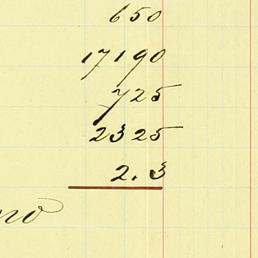 650
17190
725
2325
2.3
no